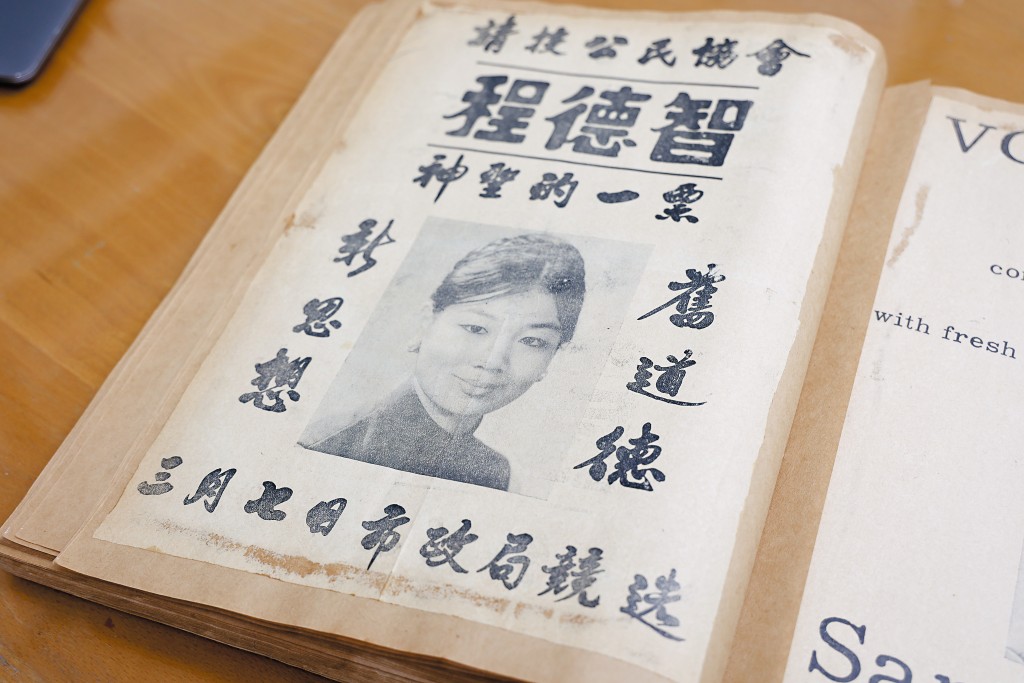 請投公民協會
程德智
神聖的一票
新思想
舊道德
三月七日市政局競选
with fresh